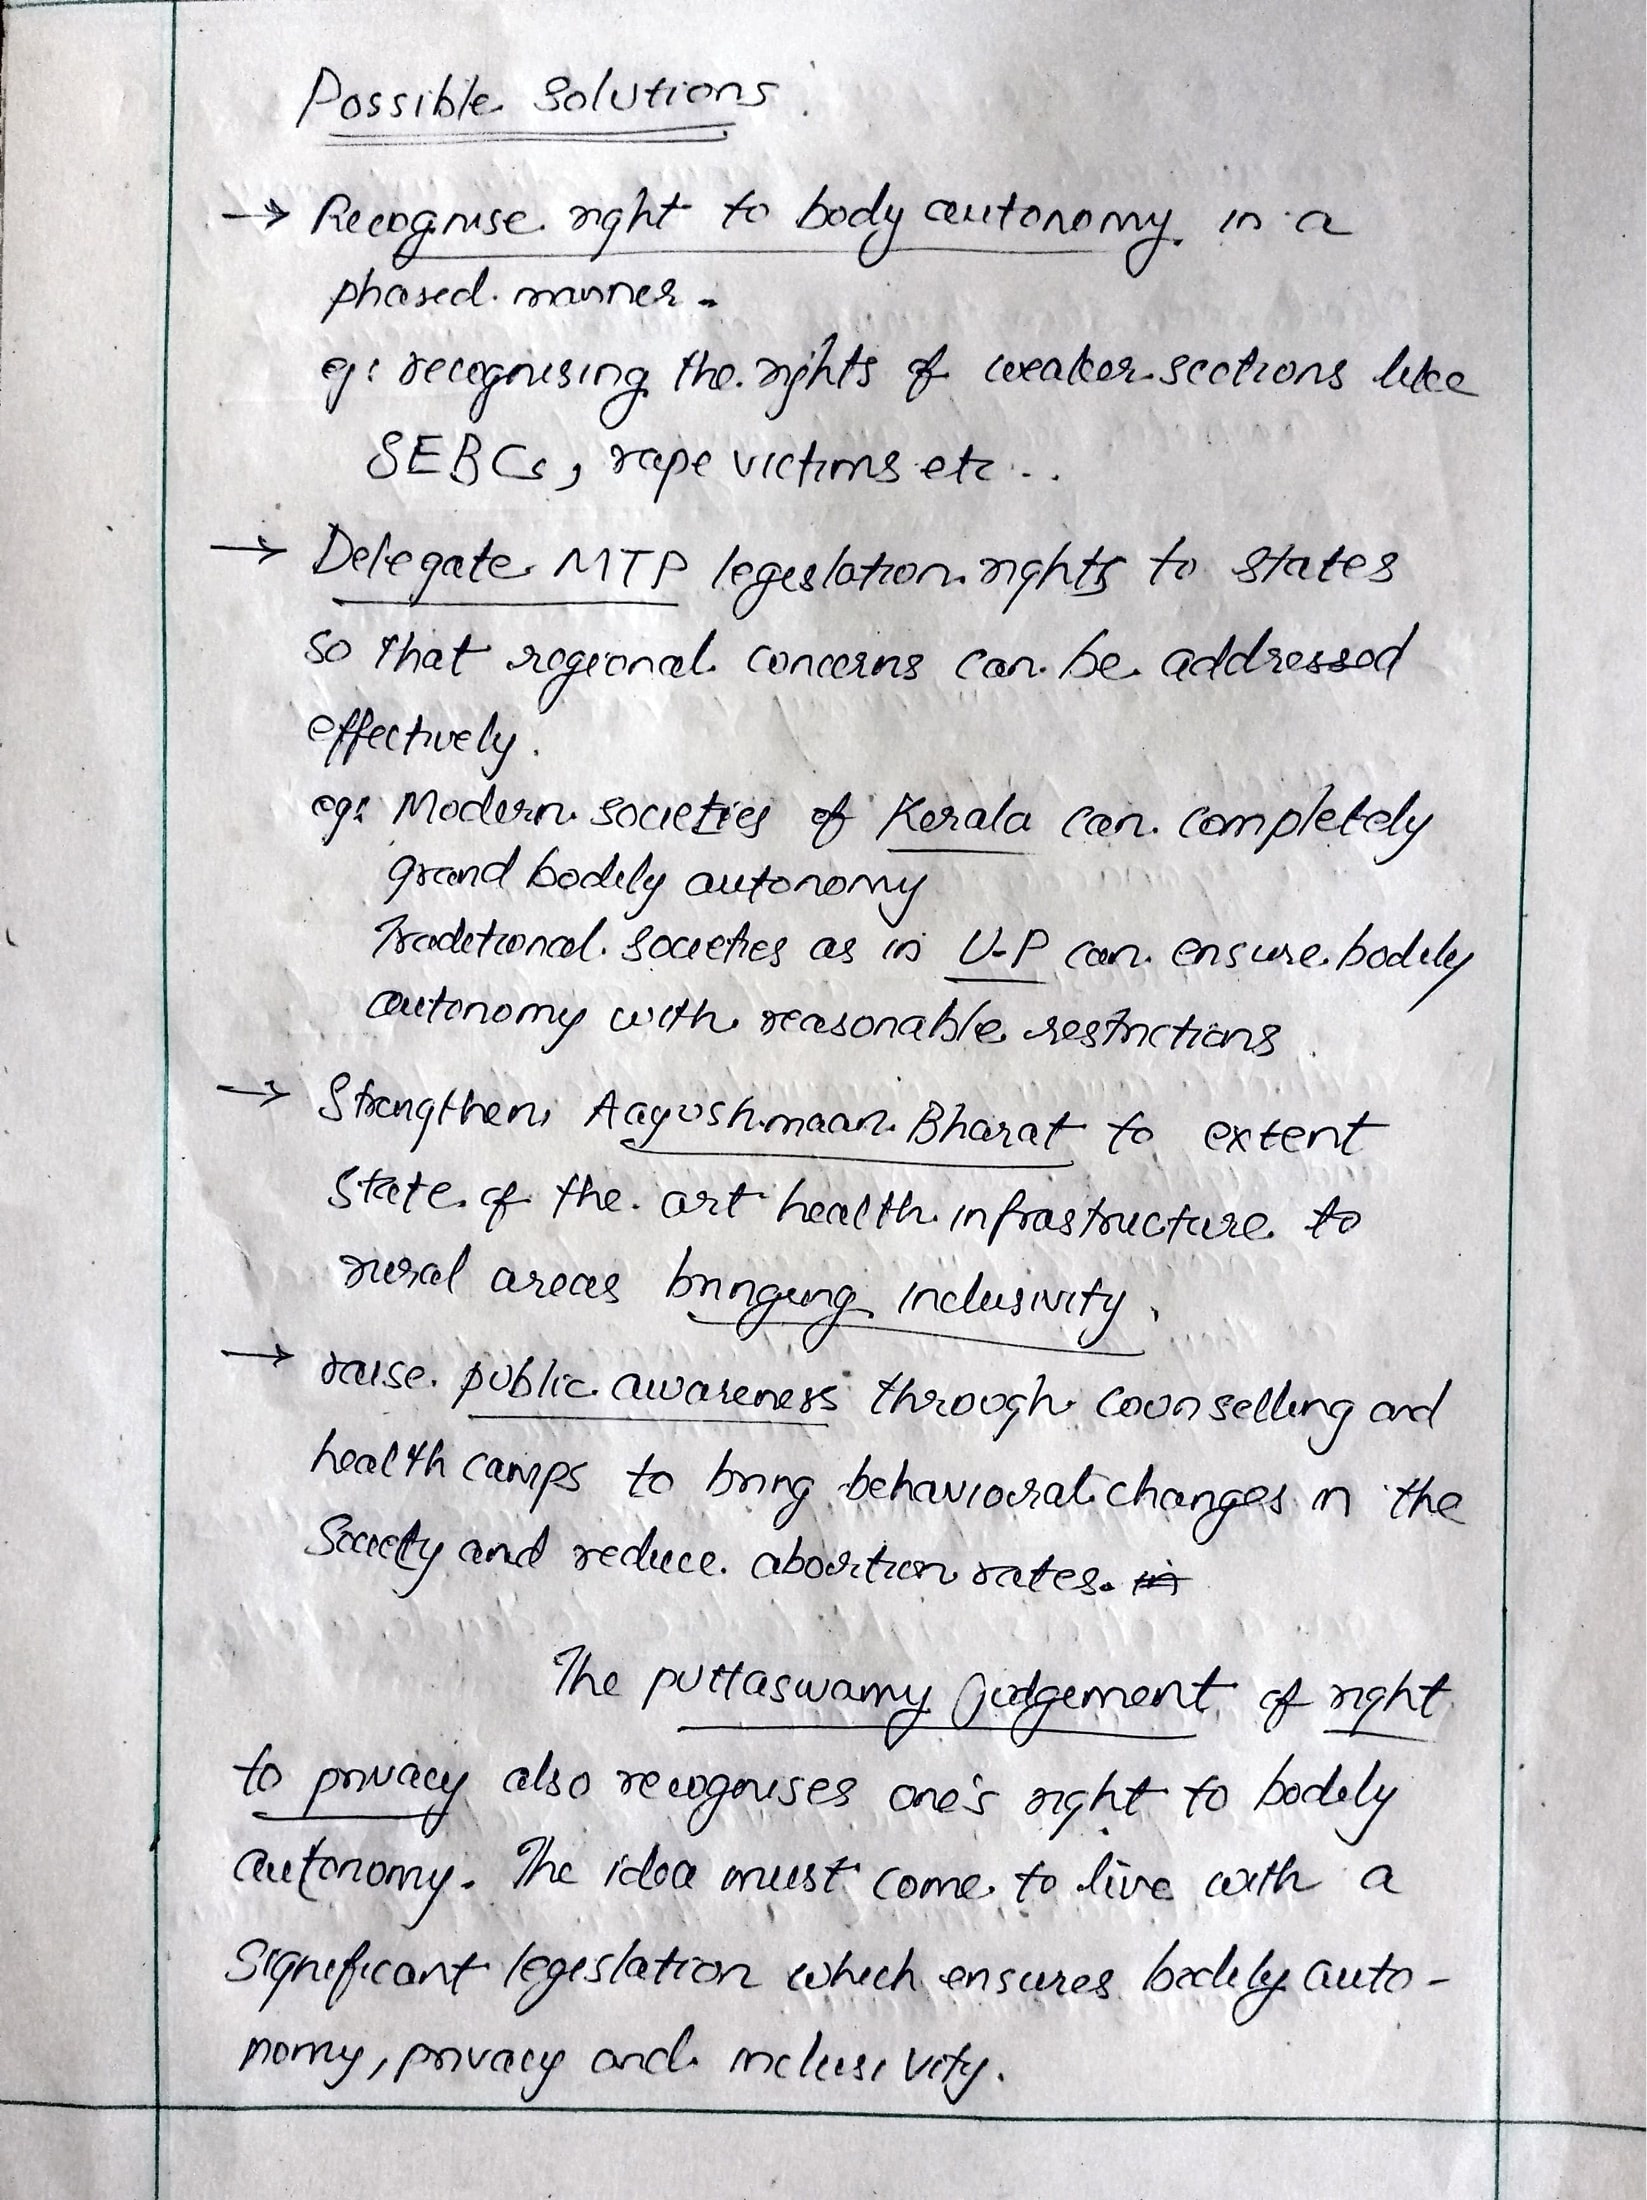 Possible Solutions.
→ Recognise right to body autonomy in a
phased manner.
eg: recognising the rights of weaker sections like
SEBCs, rape victims etc..
→ Delegate MTP legislation rights to states
so that regional concerns can be addressed
effectively.
eg: Modern societies of Kerala can completely
grand bodily autonomy
Traditional societies as in U.P can ensure bodily
autonomy with reasonable restrictions
→ Strengthen Aayushmaan Bharat to extent
state of the art health infrastructure to
rural areas bringing inclusivity.
→ raise public awareness through counselling and
health camps to bring behavioural changes in the
Society and reduce abortion rates.
The puttaswamy judgement of right
to privacy also recognises one's right to bodily
autonomy. The idea must come to live with a
significant legislation which ensures bodily auto-
nomy, privacy and inclusivity.